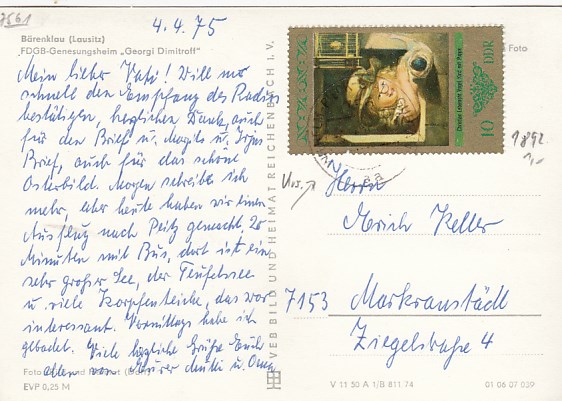 7561
4.4.75
Bärenklau (Lausitz)
FDGB-Genesungsheim „Georgi Dimitroff"
Mein lieber Vati! Will nur
schnell den Empfang des Radios
bestätigen, herzlichen Dank, auch
für den Brief u. Margits u.
Brief, auch für das schöne
Osterbild. Morgen schreibe ich
mehr, aber heute haben wir einen
Ausflug nach Peitz gemacht, 20
Minuten mit Bus, dort ist ein
sehr großer See, der Teufelssee
u. viele Karpfenteiche, das war
interessant. Vormittags habe ich
gebadet. Viele herzliche Grüße Euch
allen von Eurer Mutti u. Oma
Foto
EVP 0,25 M
VEB BILD UND HEIMAT REICHENBACH I. V.
DDR
10
Foto
1892
1,-
Herrn
Keller
7153 Markranstädt
Ziegelstraße 4
V 11 50 A 1/B 811/74
01 06 07 029